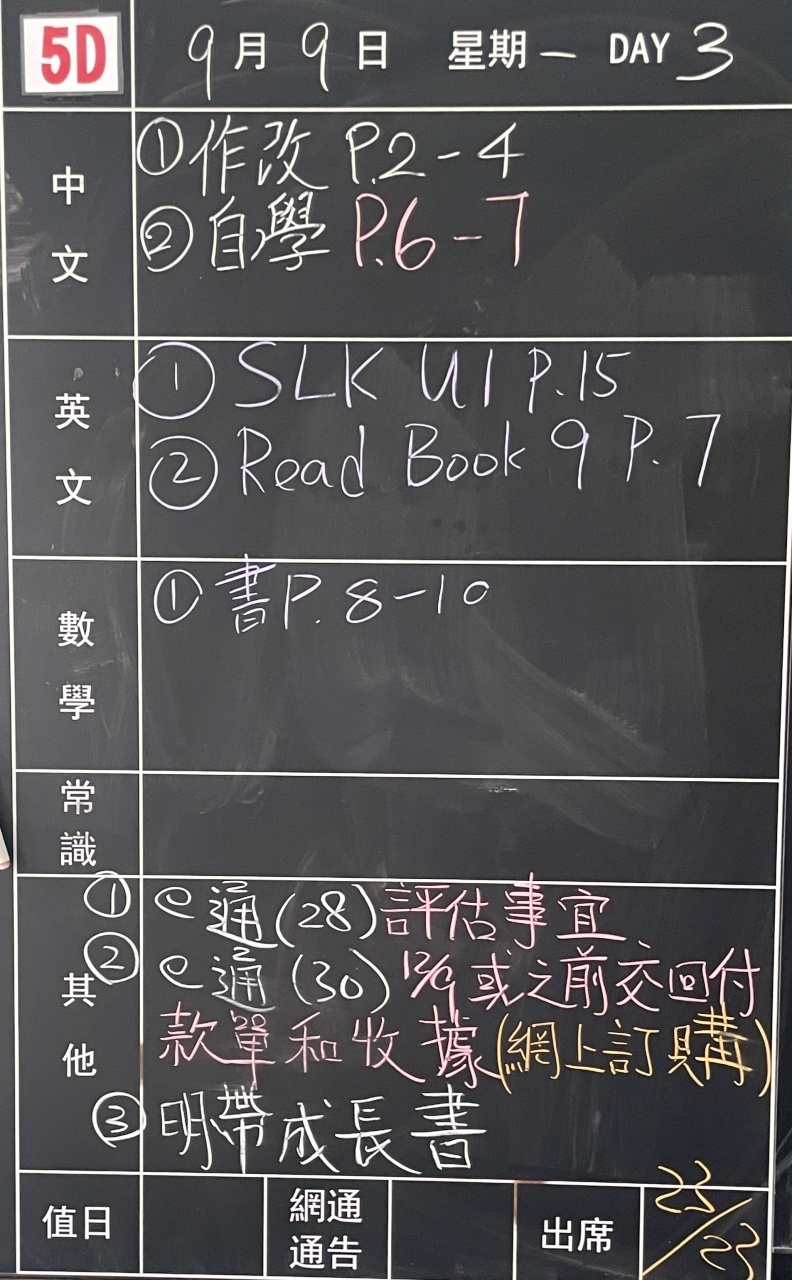 5D 9月9日 星期一 DAY 3
中文
①作改 P.2-4
②自學 P.6-7
英文
① SLK U1 P.15
② Read Book 9 P.7
數學
① 書P.8-10
常識
其他
① e通(28)評估事宜
② e通(30)12/9或之前交回付
款單和收據(網上訂購)
③ 明帶成長書
值日 網通通告 出席 23/23